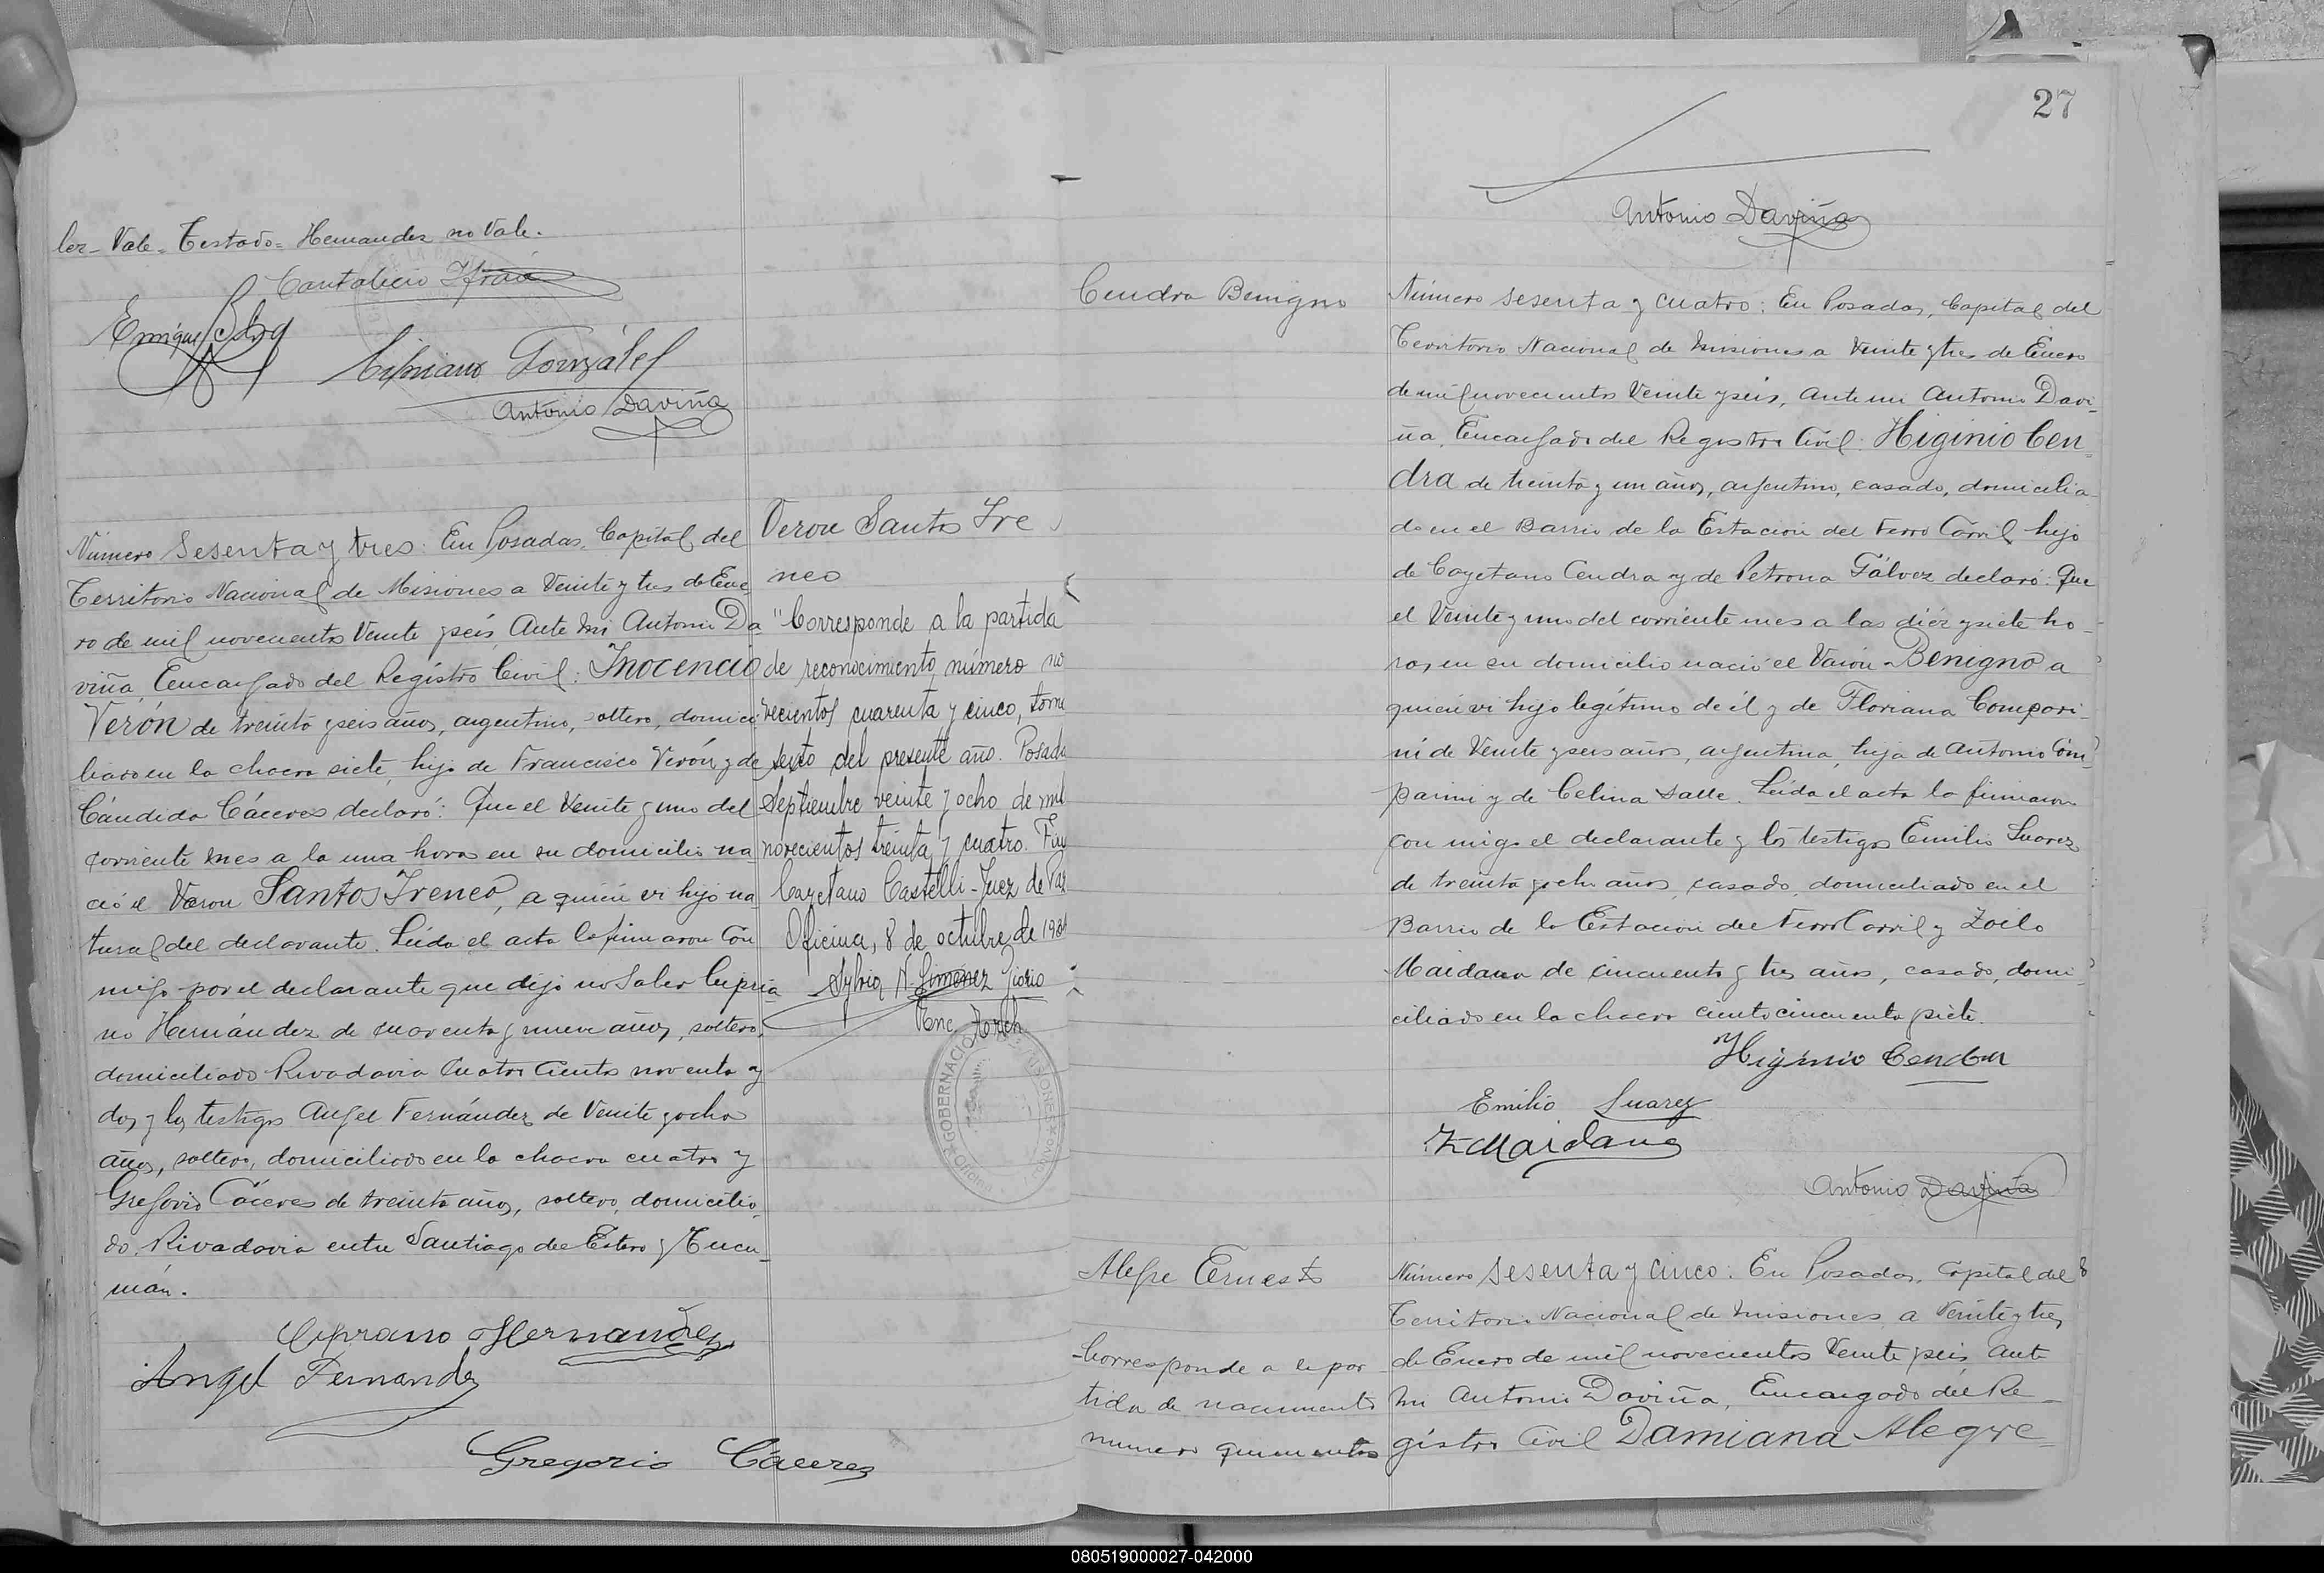 lez- Vale- Testado= Hernandez no Vale.
Cantalicio
Enrique
Cipriano González
Antonio Daviña
Número sesenta y tres: En Posadas, Capital del
Territorio Nacional de Misiones a Veinte y tres de Ene
ro de mil novecientos Veinte y seis, Ante mi Antonio Da-
viña, Encargado del Registro Civil: Inocencio
Verón de treinta y seis años, argentino, soltero, domici
liado en la chacra siete, hijo de Francisco Verón y de
Cándida Cáceres declaró: Que el Veinte y uno del
corriente mes a la una horas en su domicilio na
ció el Varon Santos Ireneo, a quien vi hijo na
tural del declarante. Leida el acta la firmaron con
migo por el declarante que dijo no Saber Cipria
no Hernández de cuarenta y nueve años, soltero,
domiciliado Rivadavia Cuatro Cientos noventa y
dos y los testigos Angel Fernández de Veinte y ocho
años, soltero, domiciliado en la chacra cuatro y
Gregorio Cáceres de treinta años, soltero, domicilia
do, Rivadavia entre Santiago del Estero y Tucu-
mán.
Cipriano Hernandez
Angel Fernandez
Gregorio Cáceres
Veron Santos Ire
neo
"Corresponde a la partida
de reconocimiento número no
vecientos cuarenta y cinco, tomo
sexto del presente año. Posadas
Septiembre veinte y ocho de mil
novecientos treinta y cuatro. Fir
Cayetano Castelli- Juez de Paz
Oficina, 8 de octubre de 1934
Sylvia N. Giménez
Enc.
GOBERNACION MISIONES
27
Antonio Daviña
Cendra Benigno
Número sesenta y cuatro: En Posadas, Capital del
Territorio Nacional de Misiones a Veinte y tres de Enero
de mil novecientos Veinte y seis, Ante mi Antonio Davi-
ña, Encargado del Registro Civil: Higinio Cen
dra de treinta y un años, argentino, casado, domicilia
do en el Barrio de la Estación del Ferro Carril hijo
de Cayetano Cendra y de Petrona Gálvez declaró: Que
el Veinte y uno del corriente mes a las diez y siete ho-
ras en su domicilio nació el Varón Benigno a
quien vi hijo legítimo de él y de Floriana Compari-
ni de Veinte y seis años, argentina, hija de Antonio Com
parini y de Celina Salle. Leida el acta la firmaron
con migo el declarante y los testigos Emilio Suarez
de treinta y ocho años casado, domiciliado en el
Barrio de la Estación del Ferro Carril y Zoilo
Maidana de cincuenta y tres años, casado, domi-
ciliado en la chacra ciento cincuenta y siete.
Higinio Cendra
Emilio Suarez
Z Maidana
Antonio Daviña
Alegre Ernesto
Corresponde a la par
tida de nacimiento
numero quinientos
Número sesenta y cinco: En Posadas, Capital del
Territorio Nacional de Misiones, a Veinte y tres
de Enero de mil novecientos Veinte y seis, ante
mi Antonio Daviña, Encargado del Re-
gistro Civil Damiana Alegre
080519000027-042000